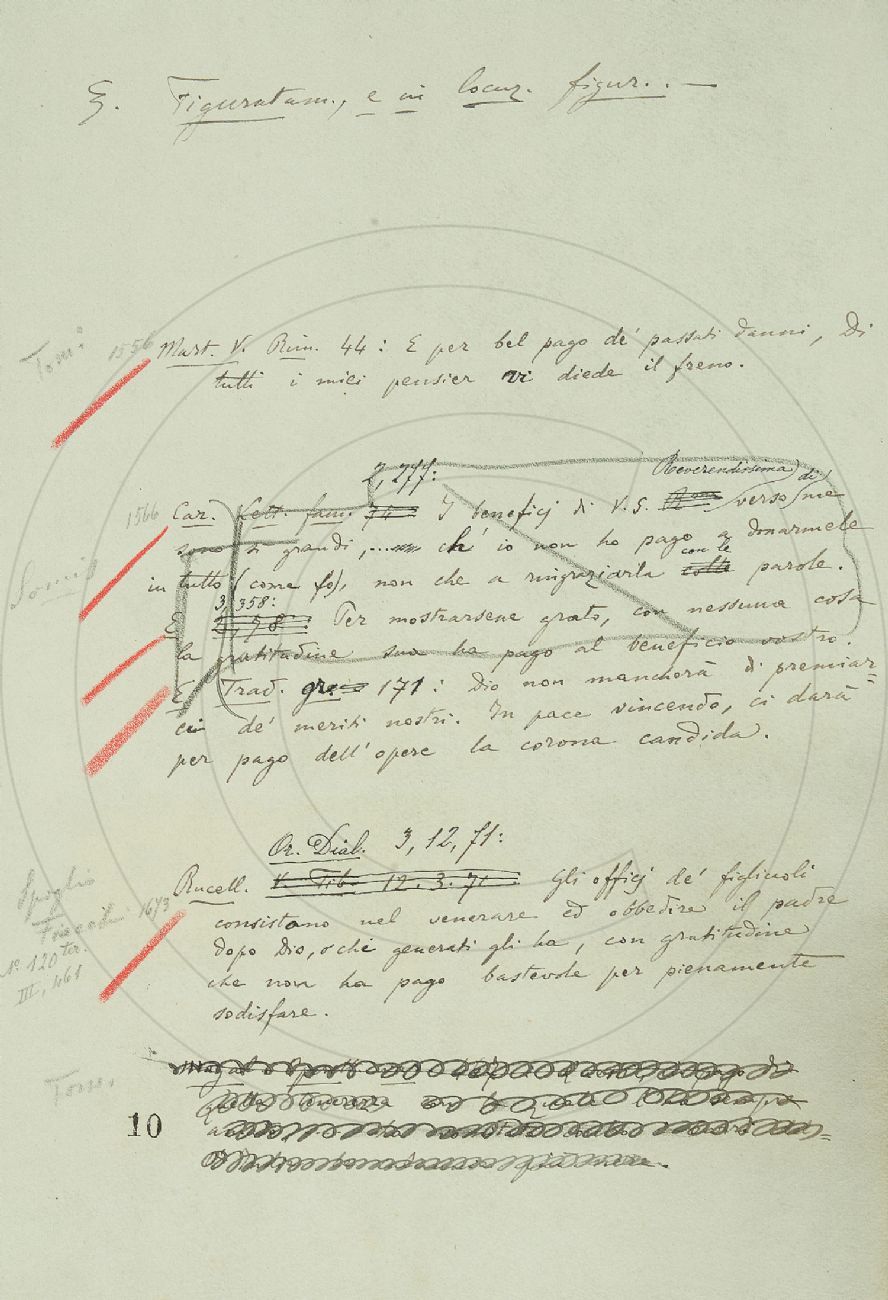 §. Figuratam., e in locuz. figur. . —
Tomi 1556
Mart. V. Rim. 44: E per bel pago de' passati danni, Di
tutti i miei pensier vi diede il freno.
2, 277:
Reverendissima di
1566 Car. Lett. fam. 74 I beneficj di V. S. verso me
sono sì grandi, ..... ch' io non ho pago a donarmele
con le
in tutto (come fo), non che a ringraziarla colle parole.
3, 358:
E 2, 78: Per mostrarsene grato, con nessuna cosa
la gratitudine sua ha pago al beneficio vostro.
E Trad. gr. 171: Dio non mancherà di premiar=
ci de' meriti nostri. In pace vincendo, ci darà
per pago dell' opere la corona candida.
Or. Dial. 3, 12, 71:
Spoglio
1673 Rucell. V. Tib. 12. 3. 71: Gli officj de' figliuoli
consistono nel venerare ed obbedire il padre
N.° 120 ter.
dopo Dio, che generati gli ha, con gratitudine
III, 461
che non ha pago bastevole per pienamente
sodisfare.
Tom.
10